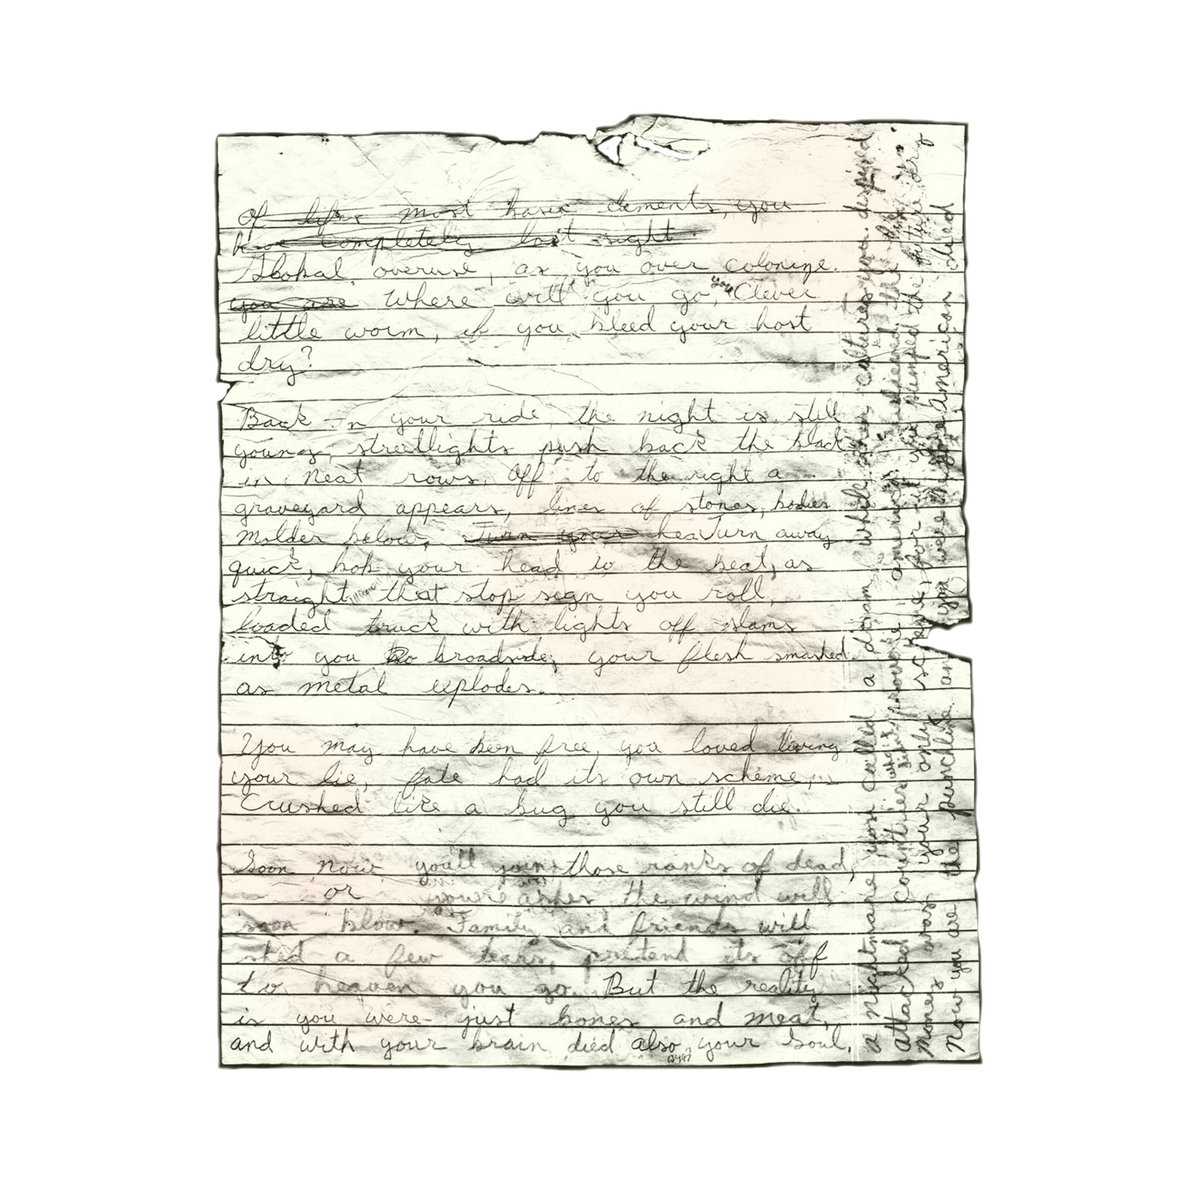 Of lifes most basic elements, you
have completely lost sight
Global overuse, as you over colonize.
you are Where will you go, you Clever
little worm, if you bleed your host
dry?
Back in your ride, the night is still
young, streetlights push back the black
in neat rows. Off to the right a
graveyard appears, lines of stones, bodies
molder below. Turn your hea Turn away
quick, bob your head to the beat, as
straight through that stop sign you roll,
loaded truck with lights off slams
into you broadside, your flesh smashed
as metal explodes.
You may have been free, you loved living
your lie, fate had its own scheme,
crushed like a bug you still die.
Soon now you'll join those ranks of dead,
or your ashes the wind will
soon blow. Family and friends will
shed a few tears, pretend its off
to heaven you go. But the reality
is you were just bones and meat,
and with your brain died also your soul.
a nightmare you called a dream while other cultures you despised
attacked countries provoke
money was your only scheme, for it you pumped the future dry
Now you are the punchline and you were American died